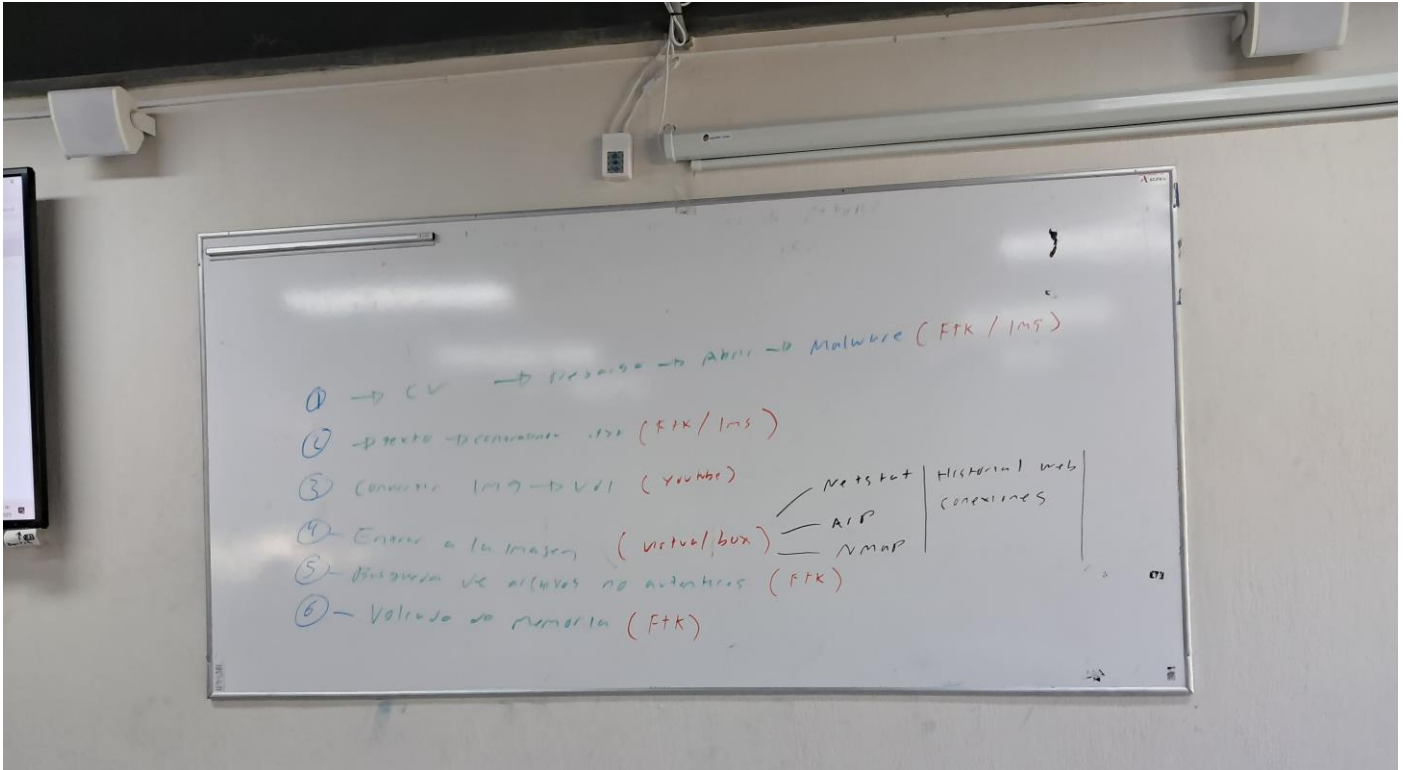 ① → CV → Descarga → Abrir → Malware (Ftk / Img)
② → texto → .txt (Ftk / Img)
③ Convertir Img → VDI (Youtube)
④ - Entrar a la imagen (virtual box)
Netstat
ARP
NMAP
Historial web
conexiones
⑤ - Busqueda de archivos no autenticos (Ftk)
⑥ - Volcado de memoria (Ftk)